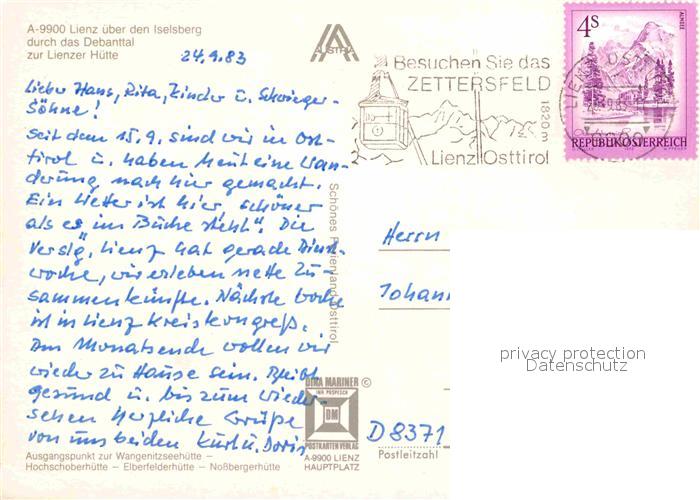 A-9900 Lienz über den Iselsberg
durch das Debanttal
zur Lienzer Hütte
24.9.83
AUSTRIA
Besuchen Sie das
ZETTERSFELD
1820 m
Lienz Osttirol
4S
ALMSEE
REPUBLIK ÖSTERREICH
Lieber Hans, Rita, Kinder u. Schwieger-
söhne!
Seit dem 15.9. sind wir in Ost-
tirol u. haben heut eine Wan-
derung nach hier gemacht.
Ein Wetter ist hier, schöner
als es im Buche steht". Die
Lienz hat gerade
woche, wir erleben nette Zu-
sammenkünfte. Nächste Woche
ist in Lienz Kreiskongreß.
Am Monatsende wollen wir
wieder zu Hause sein. Bleibt
gesund u. bis zum Wieder-
sehen herzliche Grüße
von uns beiden Kurt u. Doris
Schönes Ferienland Osttirol
Herrn
Johann
privacy protection
Datenschutz
DINA MARINER ©
DM
POSTKARTENVERLAG
A-9900 LIENZ
HAUPTPLATZ
D 8371
Postleitzahl
Ausgangspunkt zur Wangenitzseehütte –
Hochschoberhütte – Elberfelderhütte – Noßbergerhütte